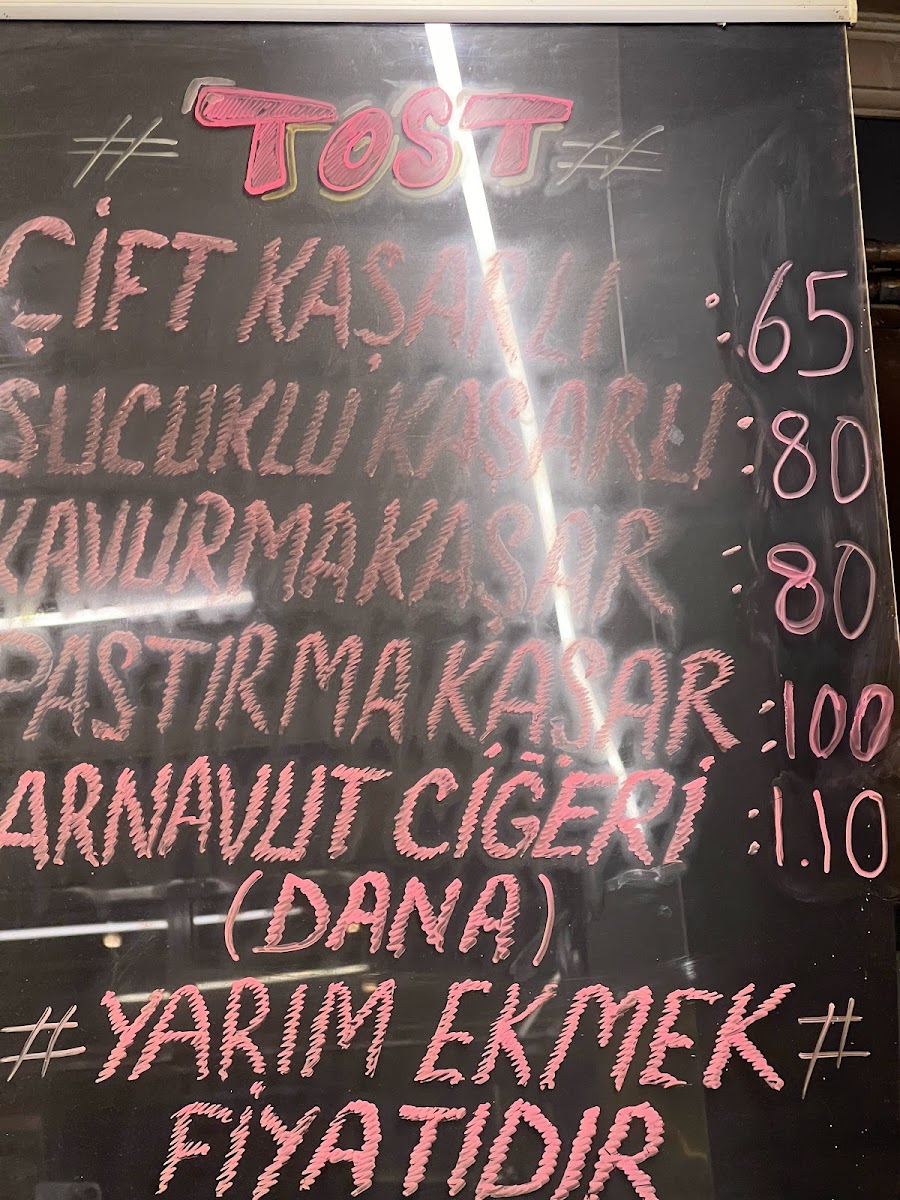 # TOST #
ÇİFT KAŞARLI : 65
SUCUKLU KAŞARLI : 80
KAVURMA KAŞAR : 80
PASTIRMA KAŞAR : 100
ARNAVUT CİĞERİ : 1.10
(DANA)
# YARIM EKMEK #
FİYATIDIR